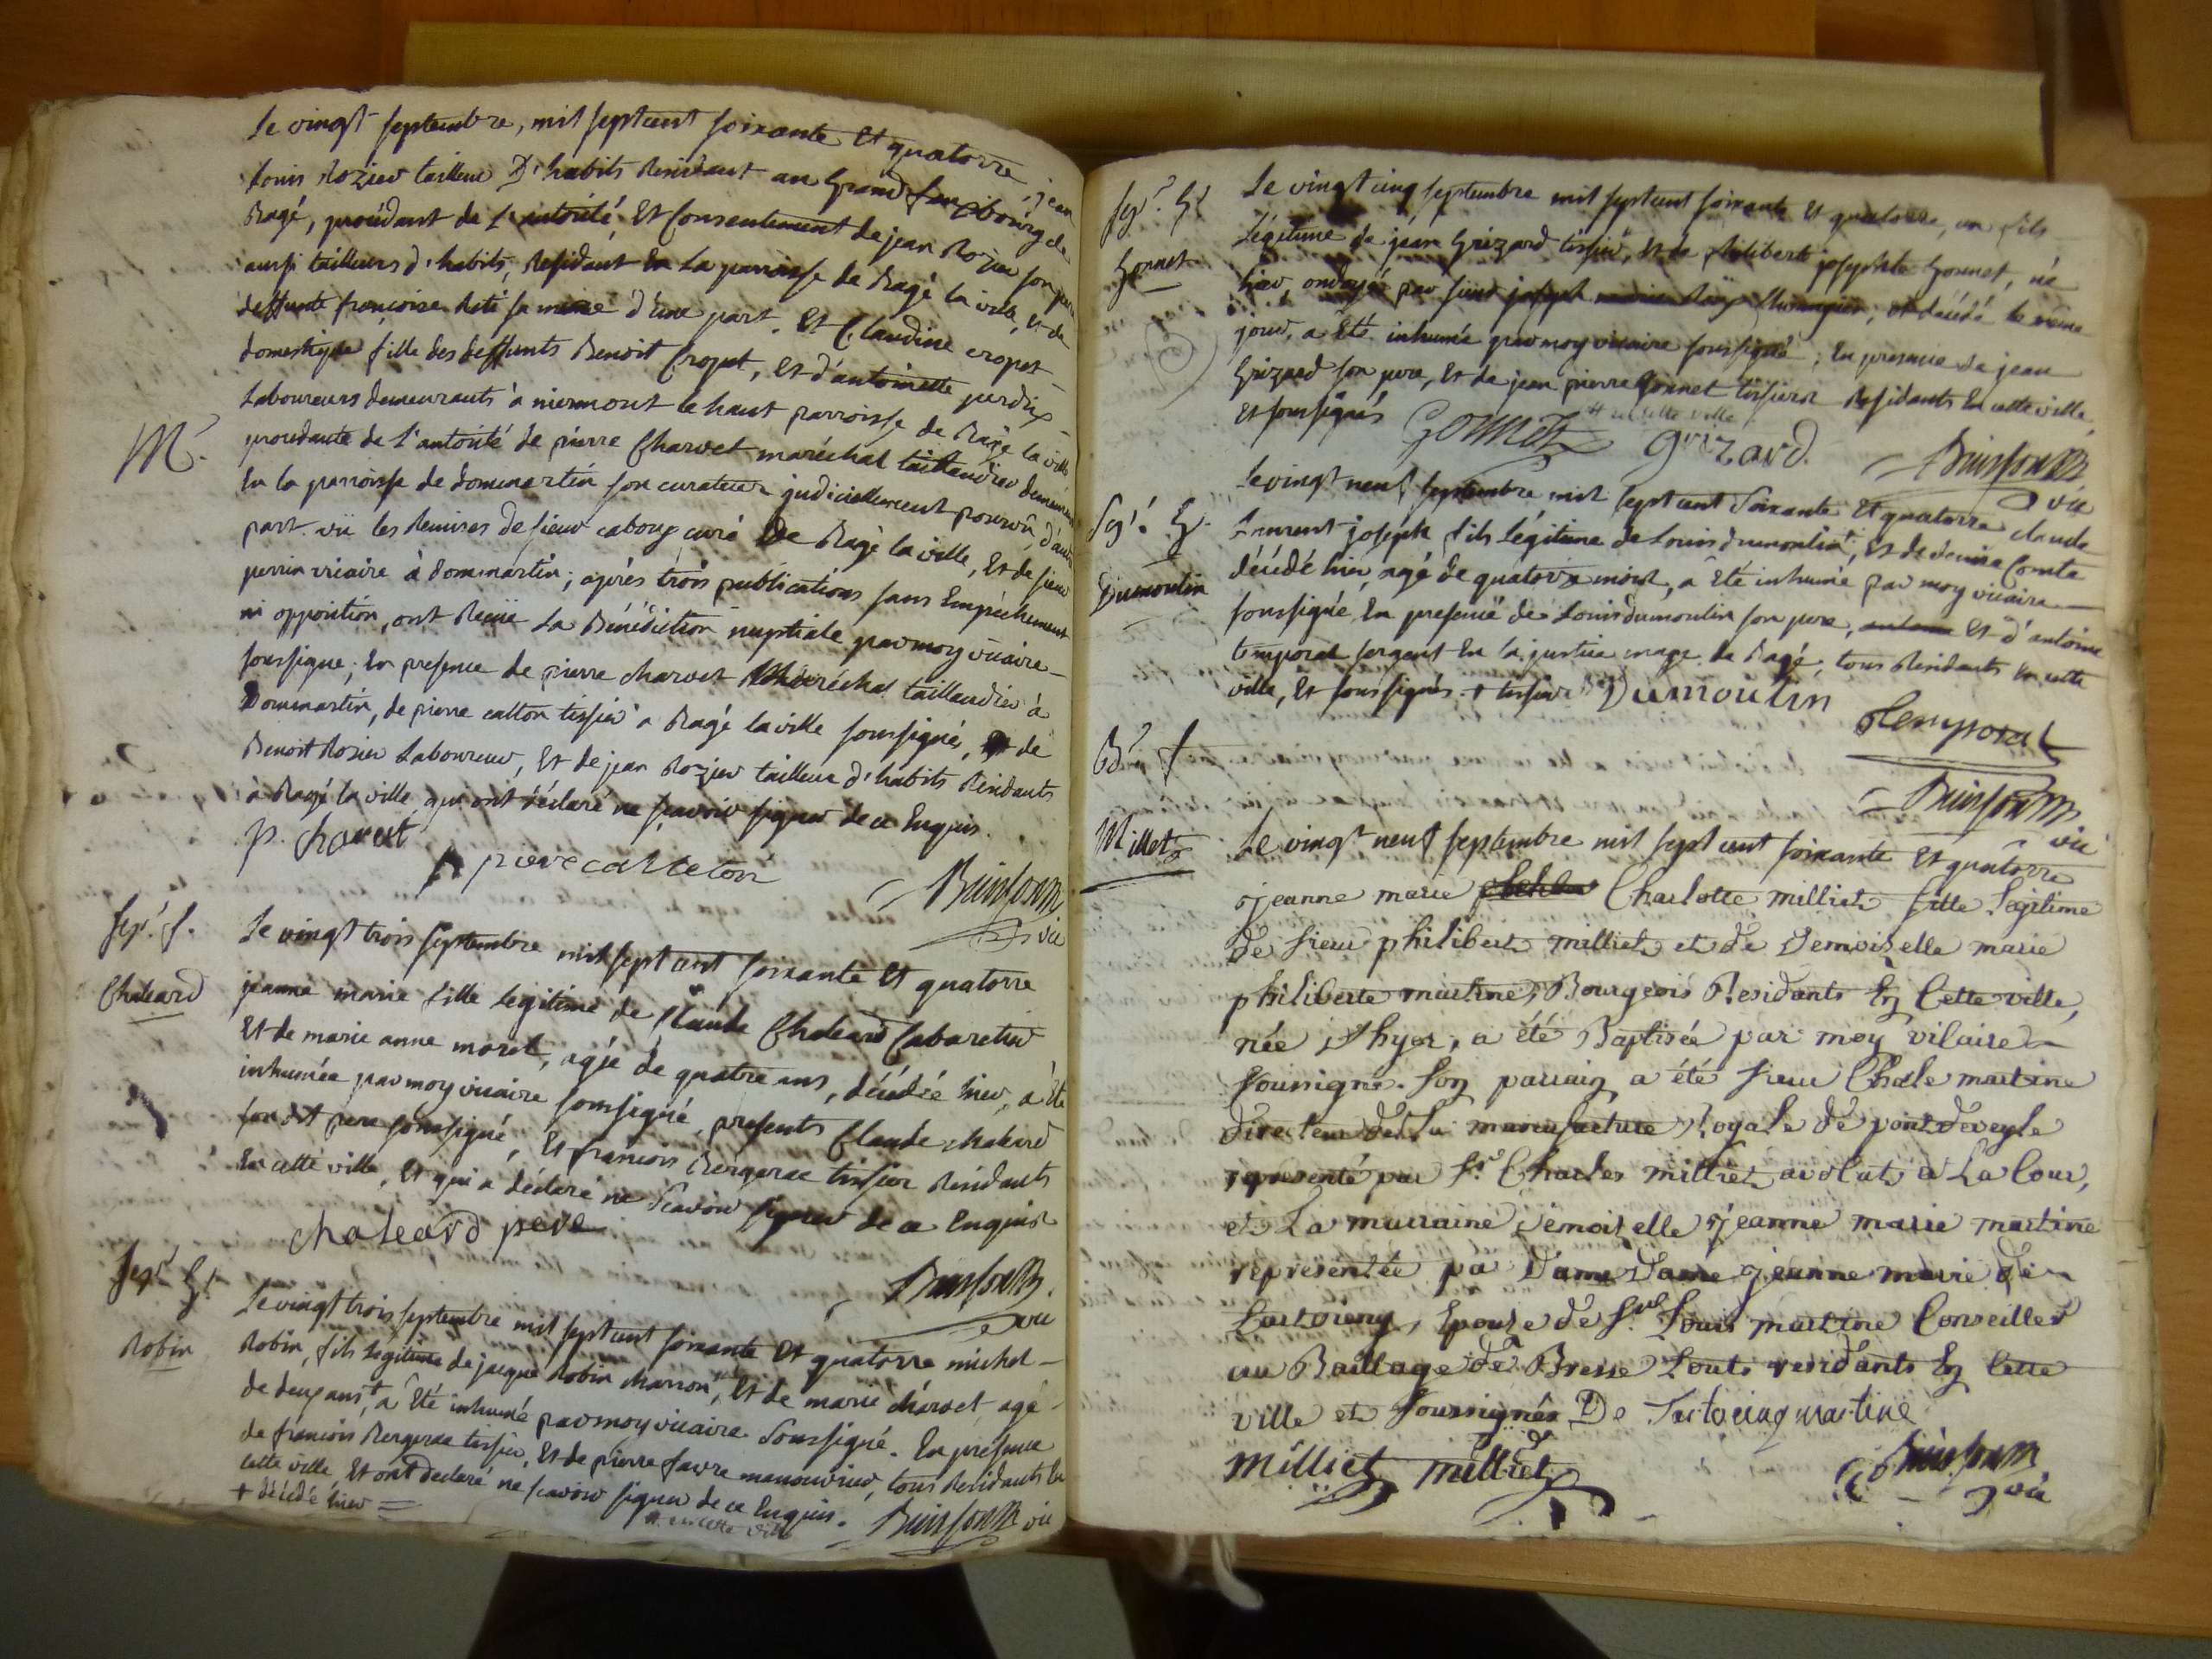 Le vingt septembre, mil sept cent soixante Et quatorze, jean
Louis Rozier tailleur D'habits Residant au Grand fauxbourg de
Bagé, procédant de L'autorité Et Consentement de jean Rozier son pere
aussi tailleurs d'habits, Residant En La parroisse de Bagé la ville, et de
deffunte françoise sa mere d'une part. Et Claudine cropet
domestique fille des deffunts Benoit Cropet, Et d'antoinette perdrix
Laboureurs demeurants à niermont le haut parroisse de Bagé la ville
M.
procedante de L'autorité de pierre Charvet maréchal taillandier demeurant
En la parroisse de dommartin son curateur judiciellement pourvû, d'autre
part. vû les Remises de sieur caboux curé De Bagé la ville, Et de sieur
perrin vicaire à dommartin; après trois publications sans Empêchement
ni opposition, ont Reçüe La Bénédiction nuptiale par moy vicaire
soussigné; En presence de pierre charvet Maréchal taillandier à
Dommartin, de pierre catton tissier à Bagé la ville soussignés, Et de
Benoit Rosier Laboureur, Et de jean Rozier tailleur d'habits Residants
à Bagé la ville qui ont déclaré ne sçavoir signer de ce Enquis.
p. charvet
pierre catteton
Buisson
vic
Sep.^r f.
Chaleard
Le vingt trois septembre mil sept cent soixante Et quatorze
jeanne marie fille Legitime de Claude Chaleard Cabaretier
Et de marie anne morel, agée de quatre ans, décédée hier, a été
inhumée par moy vicaire soussigné, presents Claude chaleard
son dt pere soussigné, Et francois Bergerac tissier Résidants
En cette ville, Et qui a déclaré ne Scavoir signer de ce Enquis
chaleard pere
Buisson
vic
Sep.^r G.
Robin
Le vingt trois septembre mil sept cent soixante Et quatorze michel
Robin, fils Légitime de jacque Robin charron, Et de marie charvet agé
de deux ans +, a Eté inhumé par moy vicaire Soussigné. En presence
de francois Bergerac tissier, Et de pierre favre manouvrier, tous Residants En
cette ville Et ont déclaré ne scavoir signer de ce Enquis.
+ décédé hier
en cette ville
Buisson vic
Sep.^r G.
Gonnet
Le vingt cinq septembre mil sept cent soixante Et quatorze, un fils
Légitime de jean Grizard tissier, Et de philiberte josephte Gonnet, né
hier ondoyé par sieur joseph chirurgien, Et décédé le même
jour, a Eté inhumé par moy vicaire soussigné; En presence de jean
Grizard son pere, Et de jean pierre Gonnet tissiers Residants En cette ville
Et soussignés
en cette ville
Gonnet
grizard
Buisson
vic
Sep.^r G.
Dumoulin
Le vingt neuf septembre mil sept cent Soixante Et quatorze claude
Laurent joseph fils Légitime de Louis dumoulin +, et de denise Comte
décédé hier, agé de quatorze mois, a Eté inhumé par moy vicaire
soussigné En presence de Louis dumoulin son pere, Et d'antoine
temporal sergent En la justice mage de Bagé, tous Residants En cette
ville, Et soussignés + tissier
Dumoulin
Temporal
Buisson
vic
B. f
Millet
Le vingt neuf septembre mil sept cent soixante Et quatorze
jeanne marie Charlotte milliet fille Légitime
de sieur philibert milliet et de Demoiselle marie
philiberte martine, Bourgeois Residants En Cette ville,
née d'hyer, a été Baptisée par moy vicaire
soussigné. Son parrain a été sieur Chale martine
directeur de La manufacture Royale de pontdeveyle
représenté par S.^r Charles milliet avocat à La Cour,
et La marraine demoiselle jeanne marie martine
représentée par Dame Dame jeanne marie de
, Epouse de S.^r Louis martine Conseiller
au Baillage de Bresse touts residants En Cette
ville et soussignés De martine
Milliet
milliet
Buisson
vic